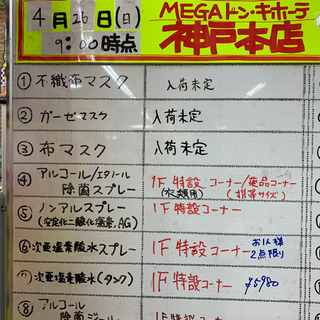 4月26日(日)
9:00時点
MEGAドン・キホーテ
神戸本店
①不織布マスク 入荷未定
②ガーゼマスク 入荷未定
③布マスク 入荷未定
④アルコール/エタノール
除菌スプレー
1F 特設コーナー/薬品コーナー
(携帯サイズ)
⑤ノンアルスプレー
(安定化二酸化塩素、AG)
1F 特設コーナー
⑥次亜塩素酸水スプレー 1F 特設コーナー お1人様
2点限り
⑦次亜塩素酸水(タンク) 1F 特設コーナー ¥5980
⑧アルコール
除菌ジェル
1F 特設コーナー